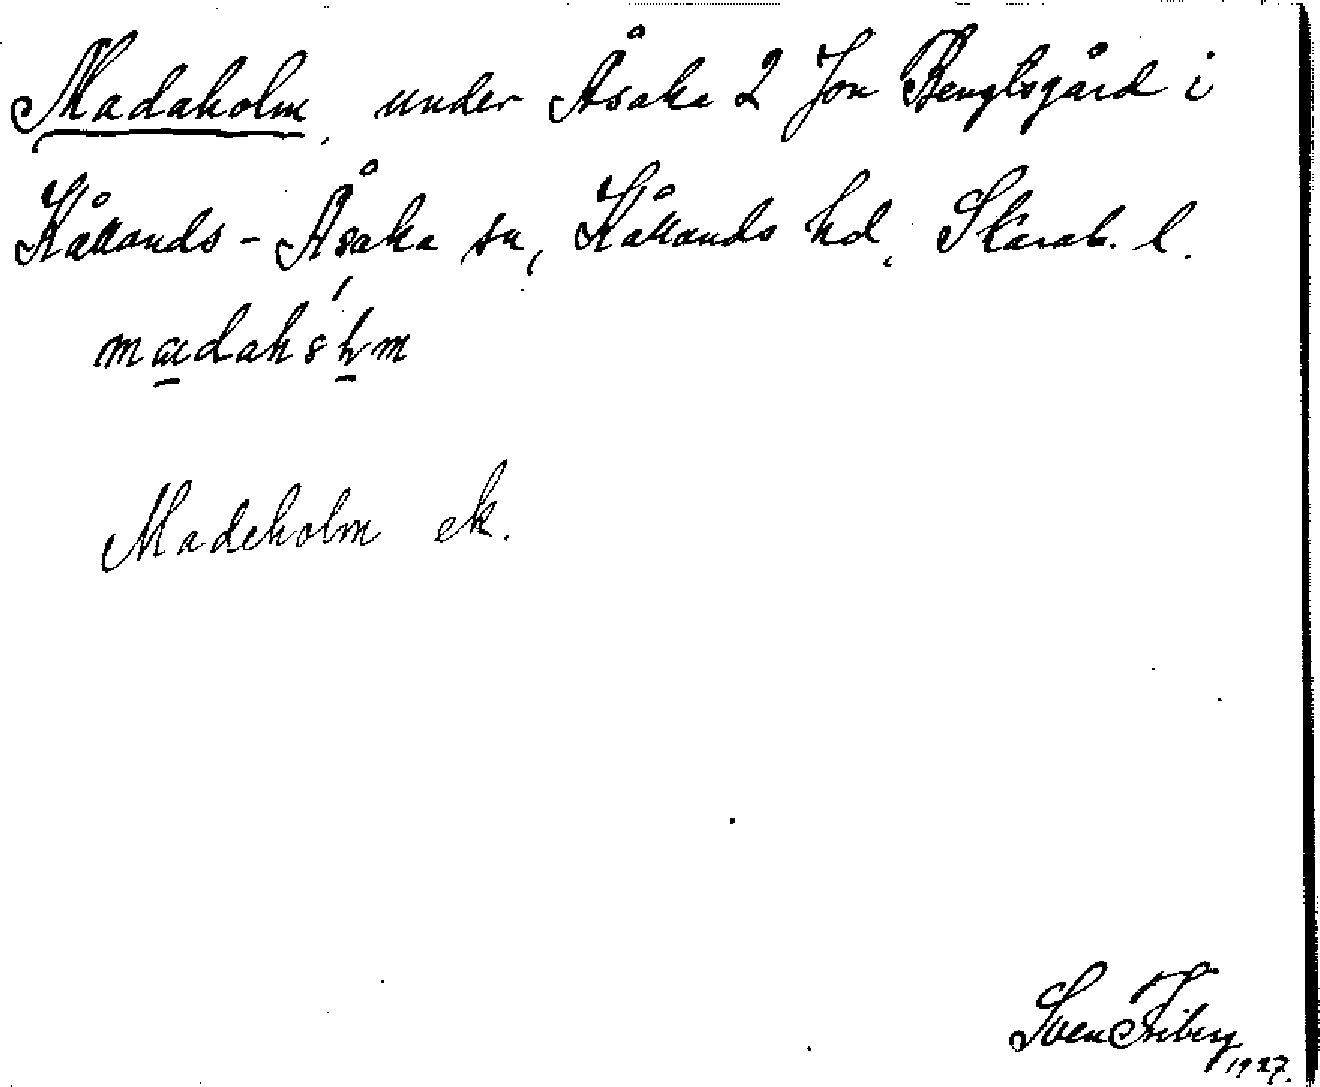 Madaholm, under Åsaka 2 Jon Bengtsgård i
Kållands-Åsaka sn, Kållands hd, Skarab. l.
Madeholm ek.
Sven Friberg
1927.